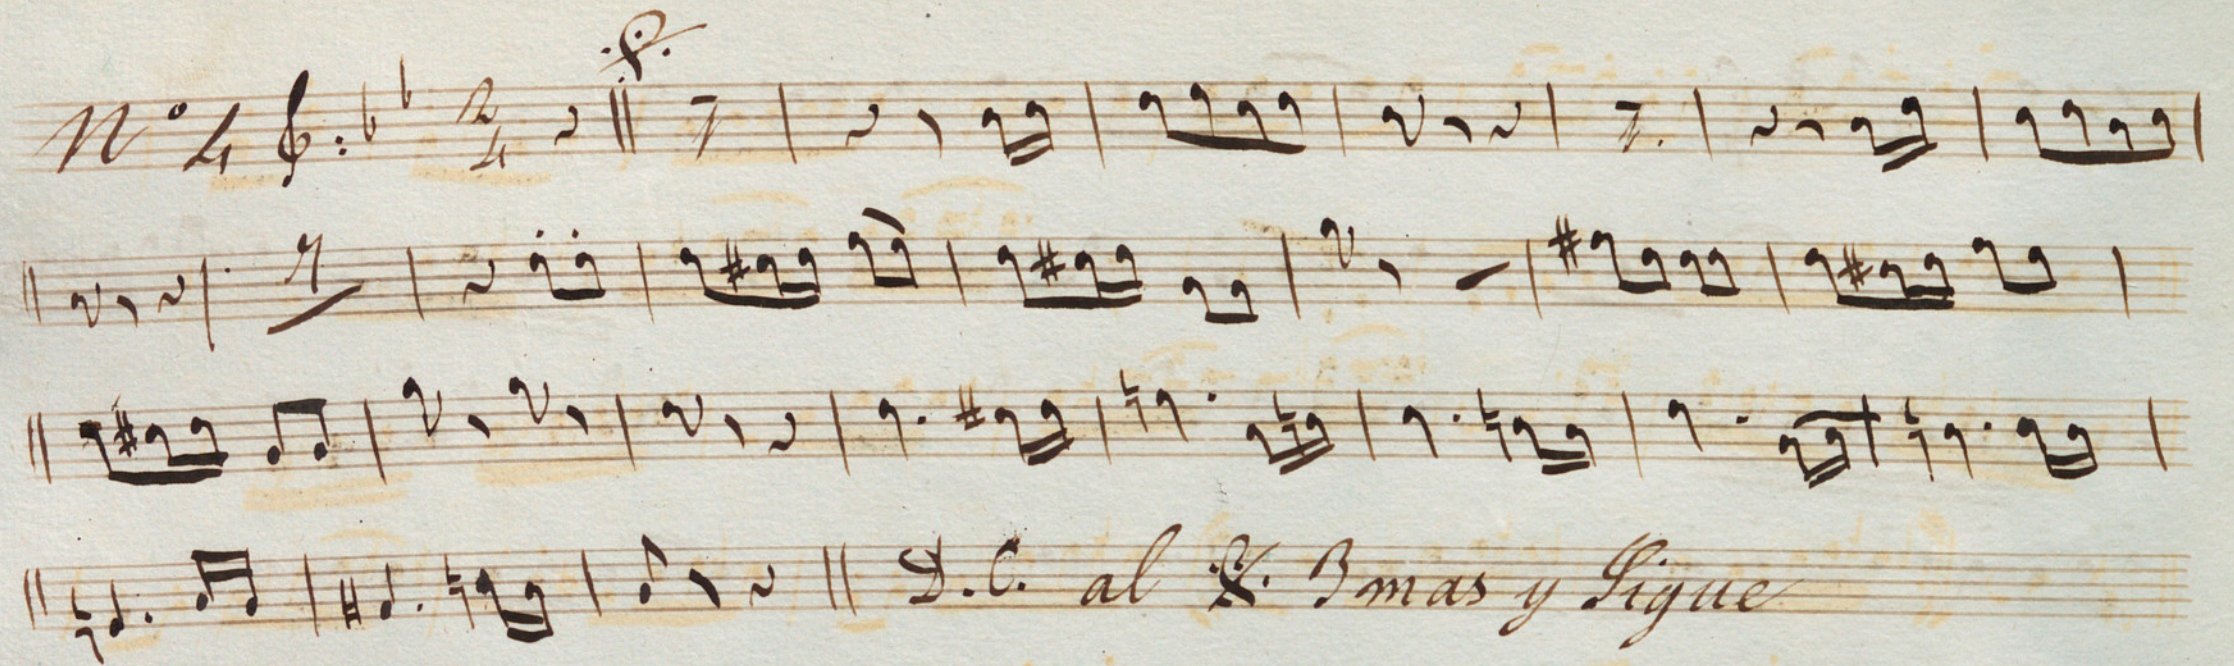 Nº 4 2/4
D.C. al 𝄋 3 mas y Sigue